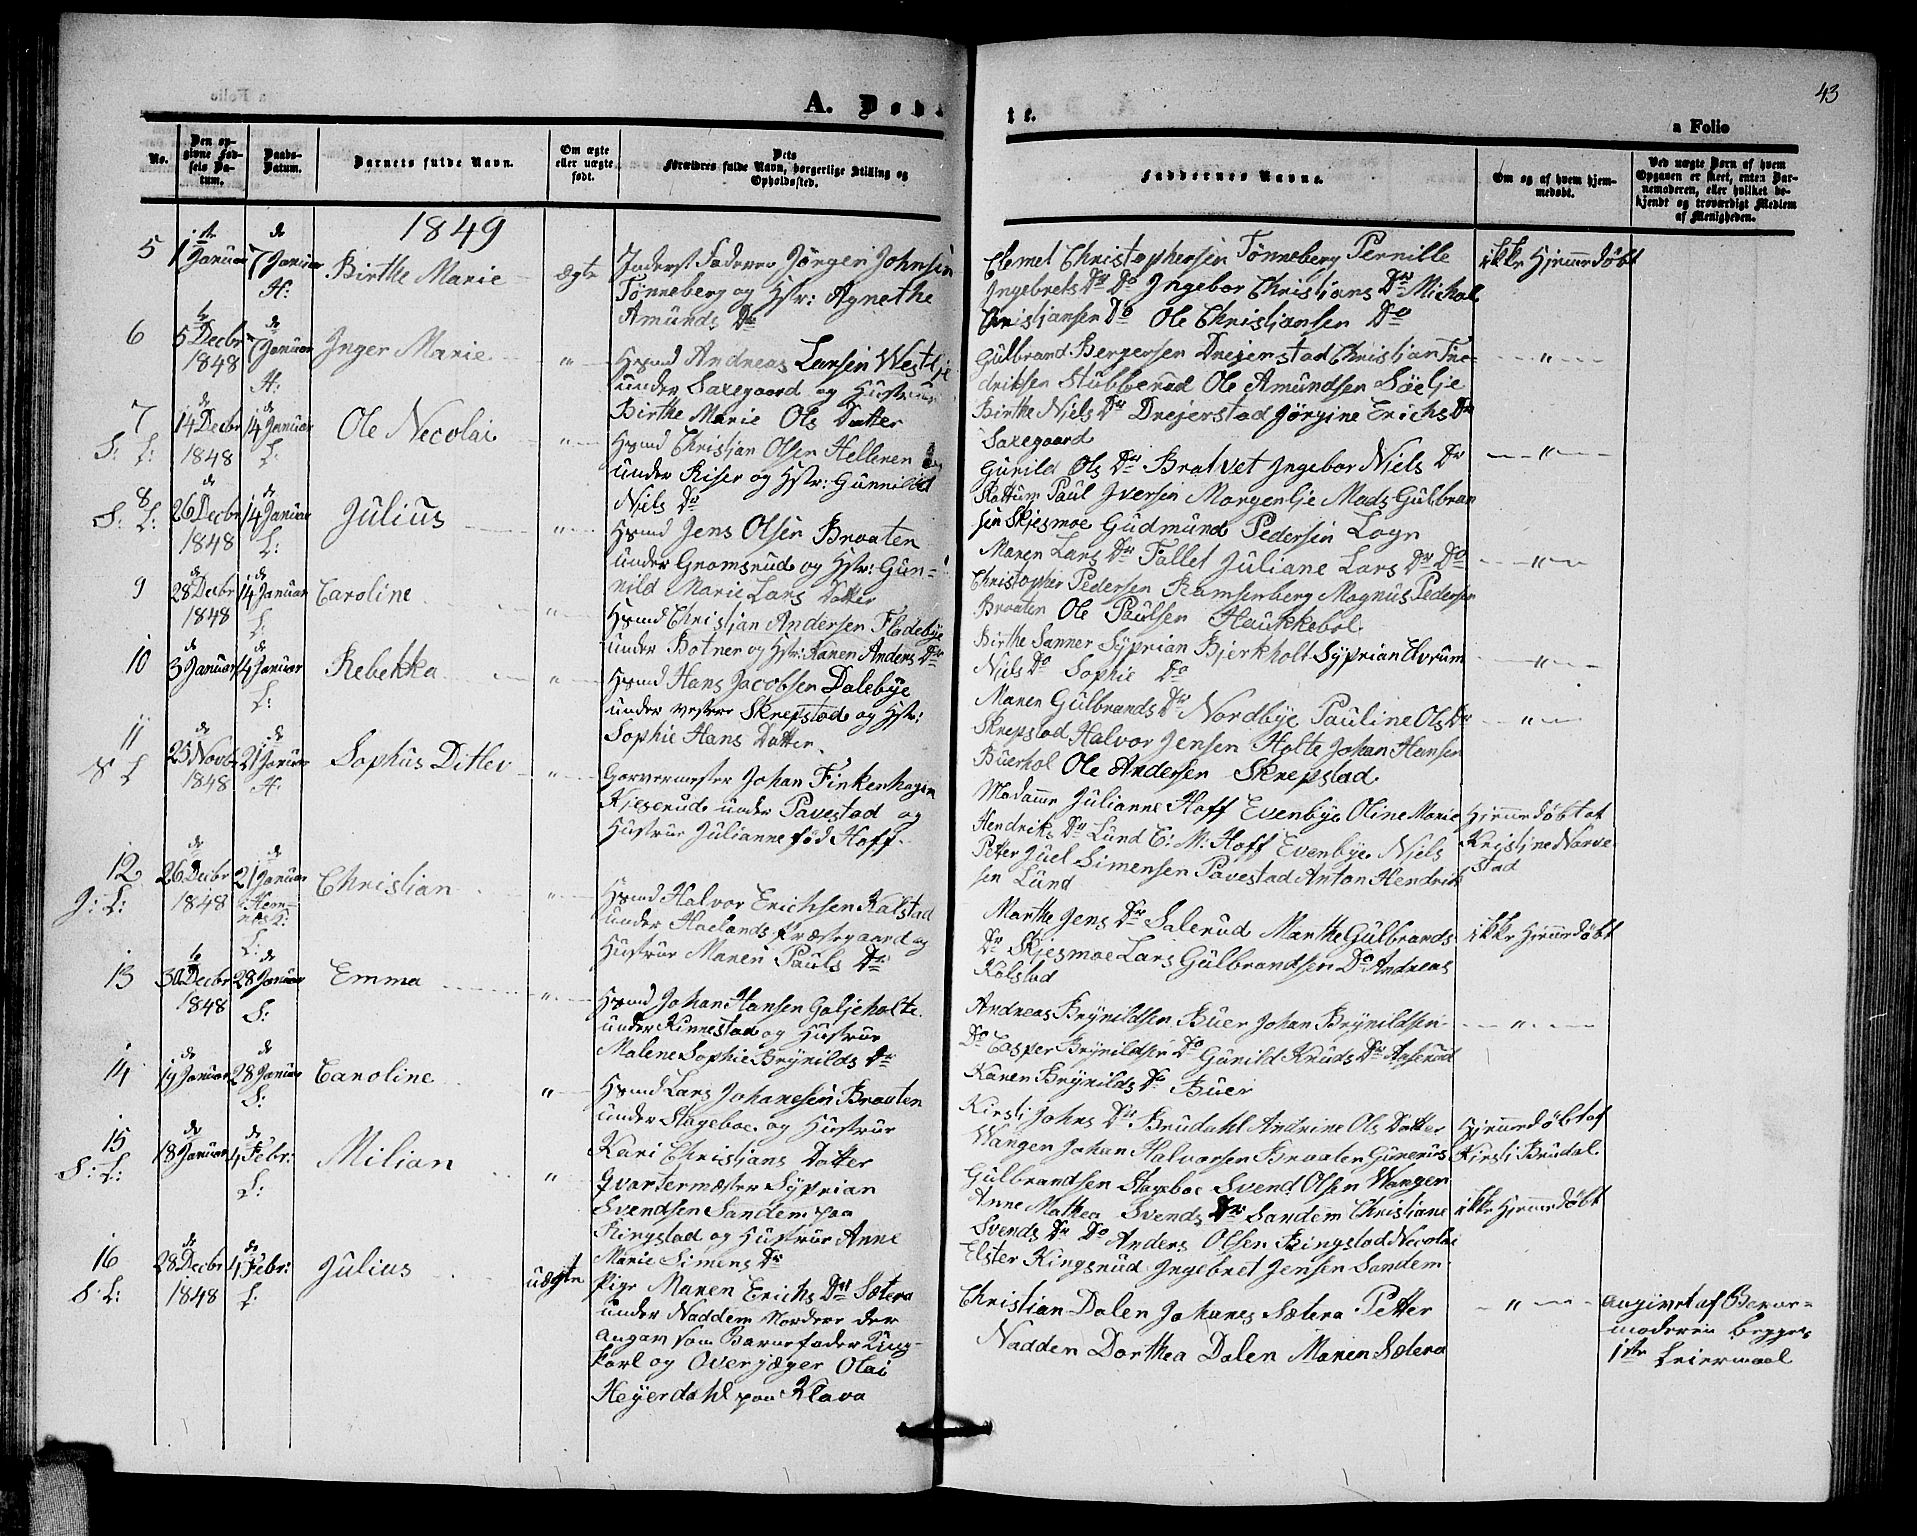 43
A. Døbte.
a Folio
No.
Den opgivne Fødsels Datum.
Daabs-Datum.
Barnets fulde Navn.
Om ægte eller uægte født.
Dets Forældres fulde Navn, borgerlige Stilling og Opholdssted.
Faddernes Navne.
Om og af hvem hjemmedøbt.
Ved uægte Børn af hvem Opgaven er skeet, enten Barnemoderen, eller hvilket bekjendt og troværdigt Medlem af Menigheden.
1849
5
1ste Januar
de 7 Januar
H:
Birthe Marie
ægte
Inderst Faderen Jørgen Johnsen
Tønneberg og Hstr: Agnethe
Amunds Dr
Clemet Christophersen Tønneberg Pernille
Ingebrets Dr Do Ingebor Christjans Dr Michal
Christjansen Do Ole Christjansen Do
ikke Hjemmedøbt
6
5 Decbr
1848
de 7 Januar
H:
Inger Marie
"
Hsmd Andreas Larsen Westlje
under Saxegaard og Hustrue
Birthe Marie Ols Datter
Gulbrand Bergersen Drejerstad Christjan Fre-
driksen Stubberud Ole Amundsen Søelje
Birthe Niels Dr Drejerstad Jørgine Erichs Dr
Saxegaard
"
7
S: L:
de 14 Decbr
1848
de 14 Januar
L:
Ole Necolai
"
Hsmd Christjan Olsen Helleren
under Riser og Hstr: Gunnild
Niels Dr
Gunild Ols Dr Bratvet Ingebor Niels Dr
Slottum Paul Iversen Morgenlje Mads Gulbran
sen Skjesmoe Gudmund Pedersen Logn
"
8
S: L:
de 26 Decbr
1848
de 14 Januar
L:
Julius
"
Hsmd Jens Olsen Braaten
under Gromsrud og Hstr: Gun-
nild Marie Lars Datter
Maren Lars Dr Fallet Juliane Lars Dr Do
Christopher Pedersen Ramsenberg Magnus Pedersen
Braaten Ole Paulsen Haukkebol
"
9
de 28 Decbr
1848
de 14 Januar
L:
Caroline
"
Hsmd Christjan Andersen Fladebye
under Botner og Hstr: Karen Anders Dr
Birthe Sanner Syprian Bjerkholt Syprian Evrum
Niels Do Sophie Do
"
10
de 3 Januar
de 14 Januar
L:
Rebekka
"
Hsmd Hans Jacobsen Dalebye
under vestere Skrepstad og Hstr:
Sophie Hans Datter
Maren Gulbrands Dr Nordbye Pauline Ols Dr
Skrepstad Halvor Jensen Holte Johan Hansen
Buerhol Ole Andersen Skrepstad
"
11
S L
de 25 Novbr
1848
de 21 Januar
H:
Sophus Ditlev
"
Garvermester Johan Finkenhagen
Kjeserud under Pavestad og
Hustrue Julianne fød Hoff.
Madame Julianne Hoff Evenbye Oline Marie
Hendriks Dr Lund C: M: Hoff Evenbye Niels
Petter Juel Simensen Pavestad Anton Hendrik
sen Lund
Hjemmedøbt af
Kristjne Narve
stad
12
J: L:
de 26 Decbr
1848
de 21 Januar
Hem-
næs K:
L:
Christian
"
Hsmd Halvor Erichsen Kalstad
under Hoelands Præstegaard og
Hustrue Maren Pauls Dr
Marthe Jens Dr Salerud Marthe Gulbrands
Dr Skjesmoe Lars Gulbrandsen Do Andreas
Kolstad
ikke Hjemmedøbt
13
30 Decbr
1848
de 28 Januar
S:
Emma
"
Hsmd Johan Hansen Galjeholte
under Kinnestad og Hustrue
Malene Sophie Brynilds Dr
Andreas Brynildsen Buer Johan Brynildsen
Do Casper Brynildsen Do Gunild Knuds Dr Aaserud
Karen Brynilds Dr Buer
"
14
de 19 Januar
de 28 Januar
S:
Caroline
"
Hsmd Lars Johanesen Braaten
under Stageboe og Hustrue
Kari Christjans Datter
Kirsti Johns Dr Brudahl Andrine Ols Datter
Wangen Johan Halvorsen Braaten Gunerius
Gulbrandsen Stageboe Svend Olsen Wangen
Hjemmedøbt af
Kirsti Brudal
15
S: L:
de 18 Januar
de 4 Febr:
L:
Milian
"
Qvartermæster Syprian
Svendsen Sandem paa
Ringstad og Hustrue Anne
Marie Simens Dr
Anne Mathea Svends Dr Sandem Christiane
Svends Dr Do Anders Olsen Ringstad Necolai
Elster Kingsrud Ingebret Jensen Sandem
ikke Hjemmedøbt
16
S: L:
28 Decbr
1848
de 4 Febr:
L:
Julius
uægte
Pige Maren Erichs Dr Sætera
under Naddem Nordere der
angav som Barnefader Ung-
karl og Overjæger Olai
Heyerdahl paa Klava
Christian Dalen Johanes Sætera Petter
Nadden Dorthea Dalen Maren Sætera
"
angivet af Barne-
moderen begges
1ste Leiermaal